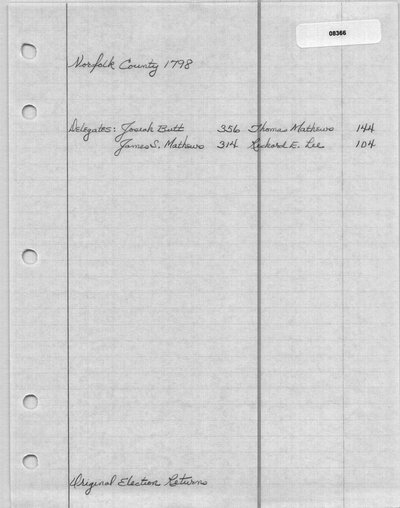 08366
Norfolk County 1798
Delegates: Josiah Butt 356 Thomas Mathews 144
James S. Mathews 314 Richard E. Lee 104
Original Election Returns